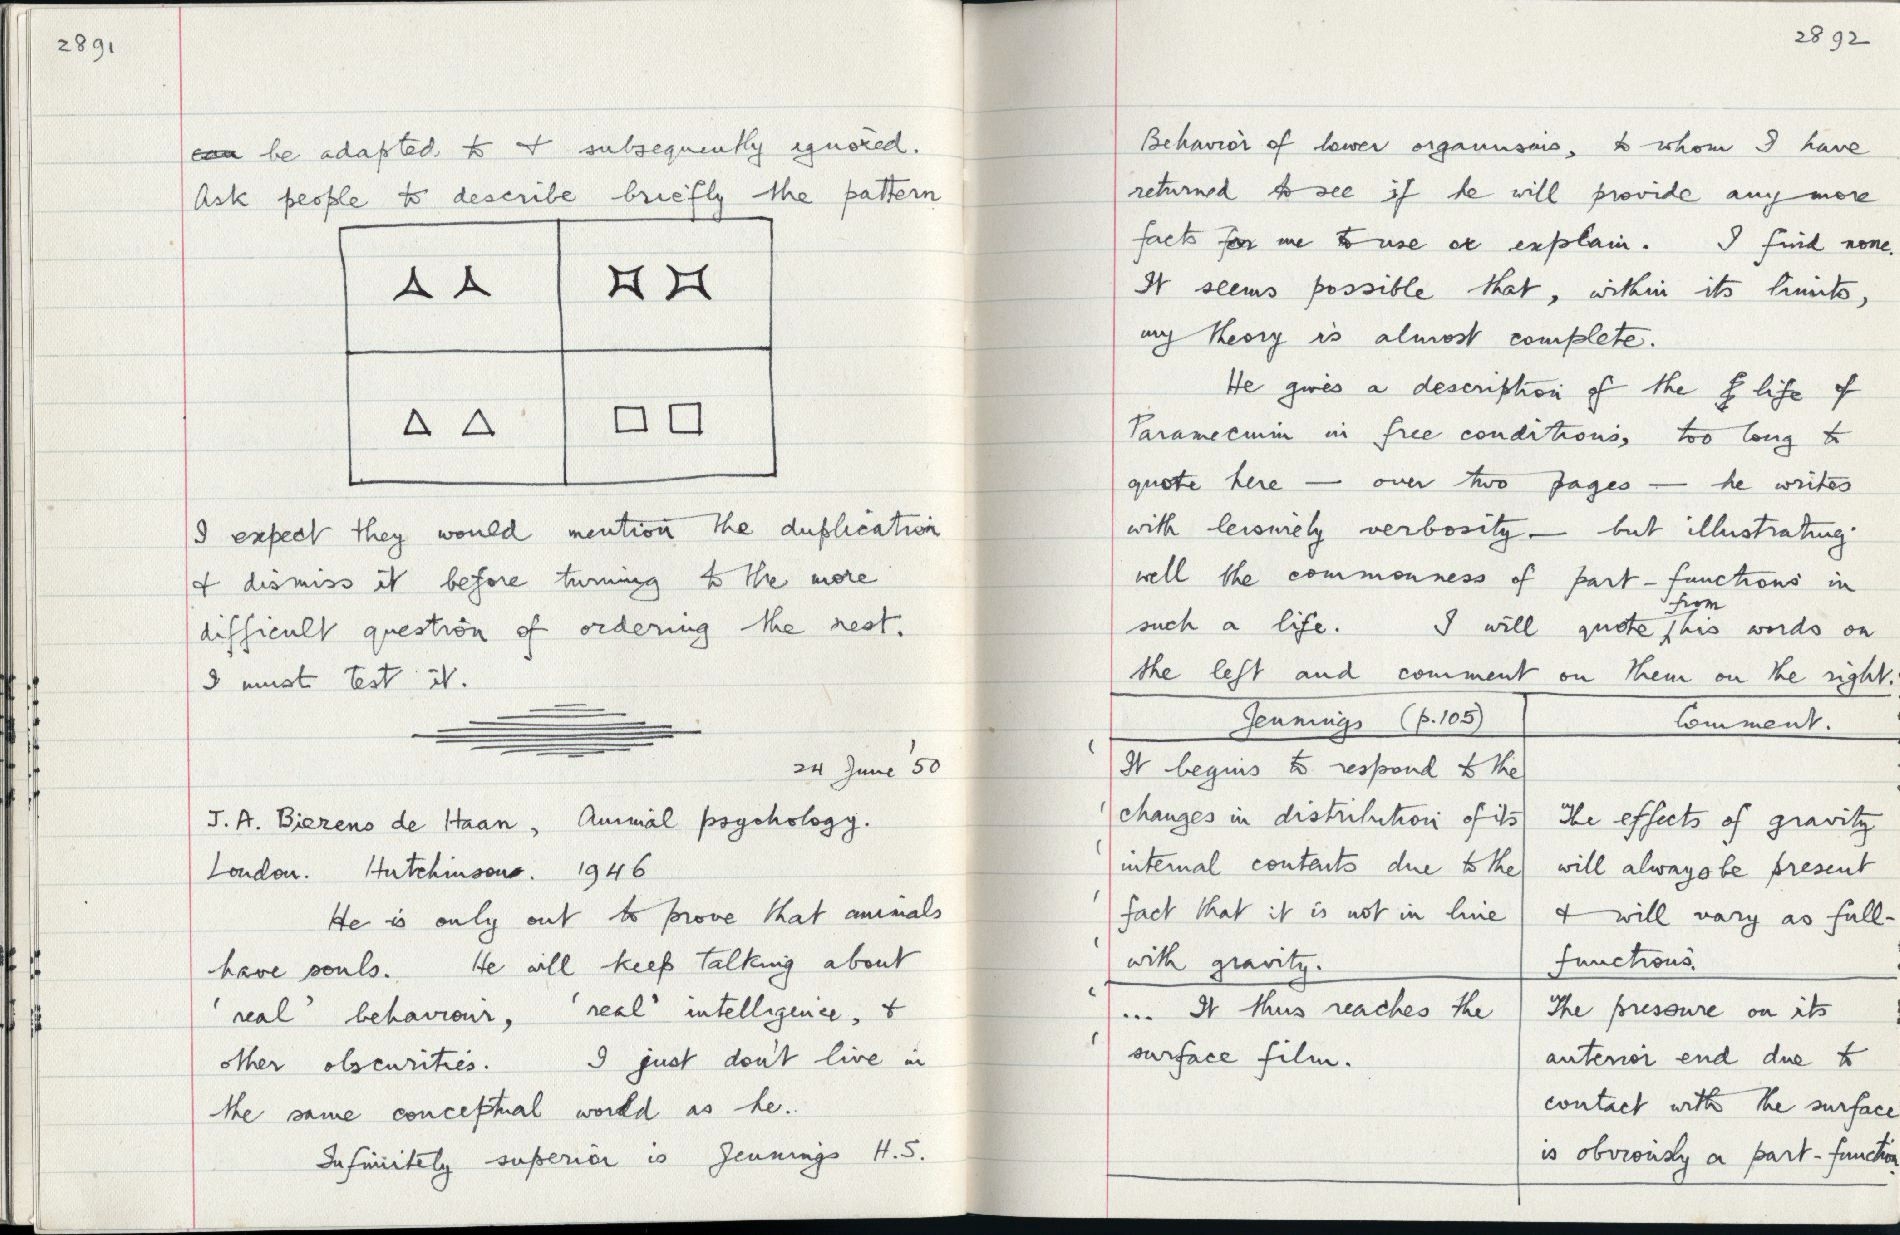 2891
can be adapted to & subsequently ignored.
Ask people to describe briefly the pattern
I expect they would mention the duplication
& dismiss it before turning to the more
difficult question of ordering the rest.
I must test it.
24 June '50
J.A. Bierens de Haan, Animal psychology.
London. Hutchinsons. 1946
He is only out to prove that animals
have souls. He will keep talking about
'real' behaviour, 'real' intelligence, &
other obscurities. I just don't live in
the same conceptual world as he..
Infinitely superior is Jennings H.S.
2892
Behavior of lower organisms, to whom I have
returned to see if he will provide any more
facts for me to use or explain. I find none.
It seems possible that, within its limits,
my theory is almost complete.
He gives a description of the life of
Paramecium in free conditions, too long to
quote here — over two pages — he writes
with leisurely verbosity — but illustrating
well the commonness of part-functions in
such a life. I will quote from his words on
the left and comment on them on the right.
Jennings (p.105)
Comment.
' It begins to respond to the
' changes in distribution of its
' internal contents due to the
' fact that it is not in line
' with gravity.
The effects of gravity
will always be present
& will vary as full-
functions.
' ... It thus reaches the
' surface film.
The pressure on its
anterior end due to
contact with the surface
is obviously a part-function.